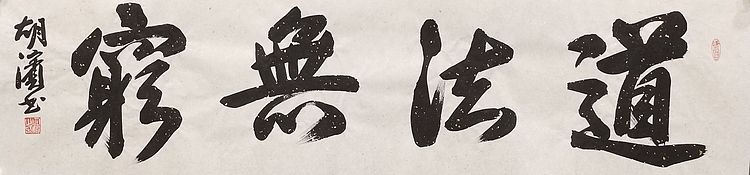 道法無窮
胡濱书